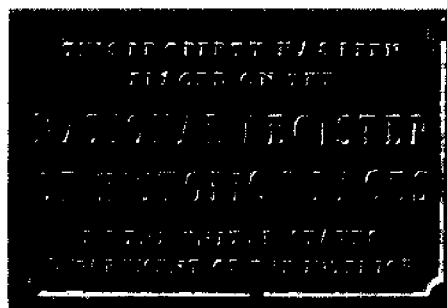 THIS PROPERTY HAS BEEN
PLACED ON THE
NATIONAL REGISTER
OF HISTORIC PLACES
BY THE UNITED STATES
DEPARTMENT OF THE INTERIOR